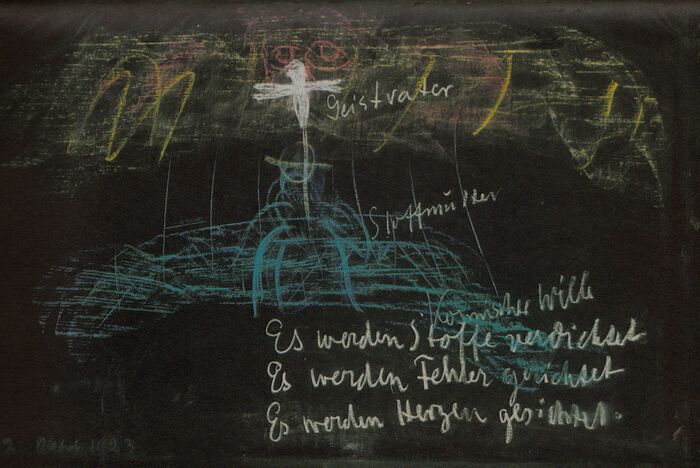 Geistvater
Stoffmutter
Kosmischer Wille
Es werden Stoffe verdichtet
Es werden Fehler gerichtet
Es werden Herzen gesichtet.
1923